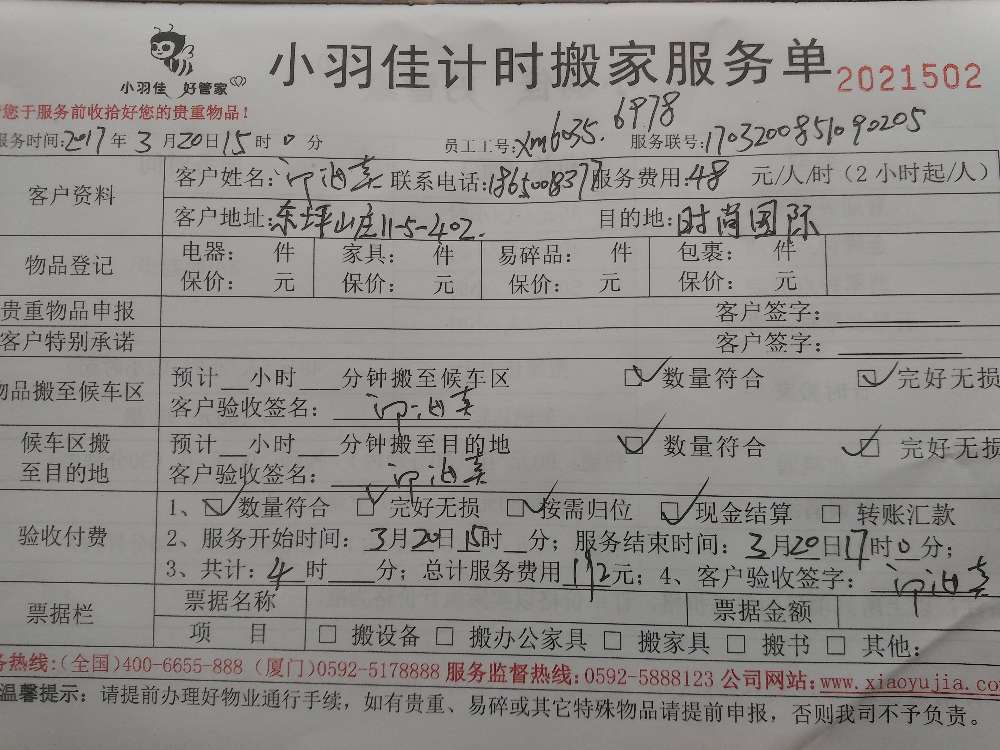 小羽佳 好管家
小羽佳计时搬家服务单 2021502
您于服务前收拾好您的贵重物品！
服务时间:2017年 3月20日15时0分 员工工号:xm6035.6978 服务联号:1703200851090205
客户资料 客户姓名: 联系电话: 服务费用:48 元/人/时（2小时起/人）
客户地址:东坪山庄11-5-402. 目的地:时尚国际
物品登记 电器： 件 家具： 件 易碎品： 件 包裹： 件
保价： 元 保价： 元 保价： 元 保价： 元
贵重物品申报 客户签字：
客户特别承诺 客户签字：
物品搬至候车区 预计__小时___分钟搬至候车区 ☑数量符合 ☑完好无损
客户验收签名：
候车区搬至目的地 预计__小时___分钟搬至目的地 ☑数量符合 ☑完好无损
客户验收签名：
验收付费 1、☑数量符合 ☑完好无损 ☑按需归位 ☑现金结算 □转账汇款
2、服务开始时间：3月20日15时__分；服务结束时间：3月20日17时0分；
3、共计：4时___分；总计服务费用192元；4、客户验收签字：
票据栏 票据名称 票据金额
项 目 □ 搬设备 □ 搬办公家具 □ 搬家具 □ 搬书 □ 其他:
务热线:(全国)400-6655-888 (厦门)0592-5178888 服务监督热线:0592-5888123 公司网站:www.xiaoyujia.com
温馨提示：请提前办理好物业通行手续，如有贵重、易碎或其它特殊物品请提前申报，否则我司不予负责。